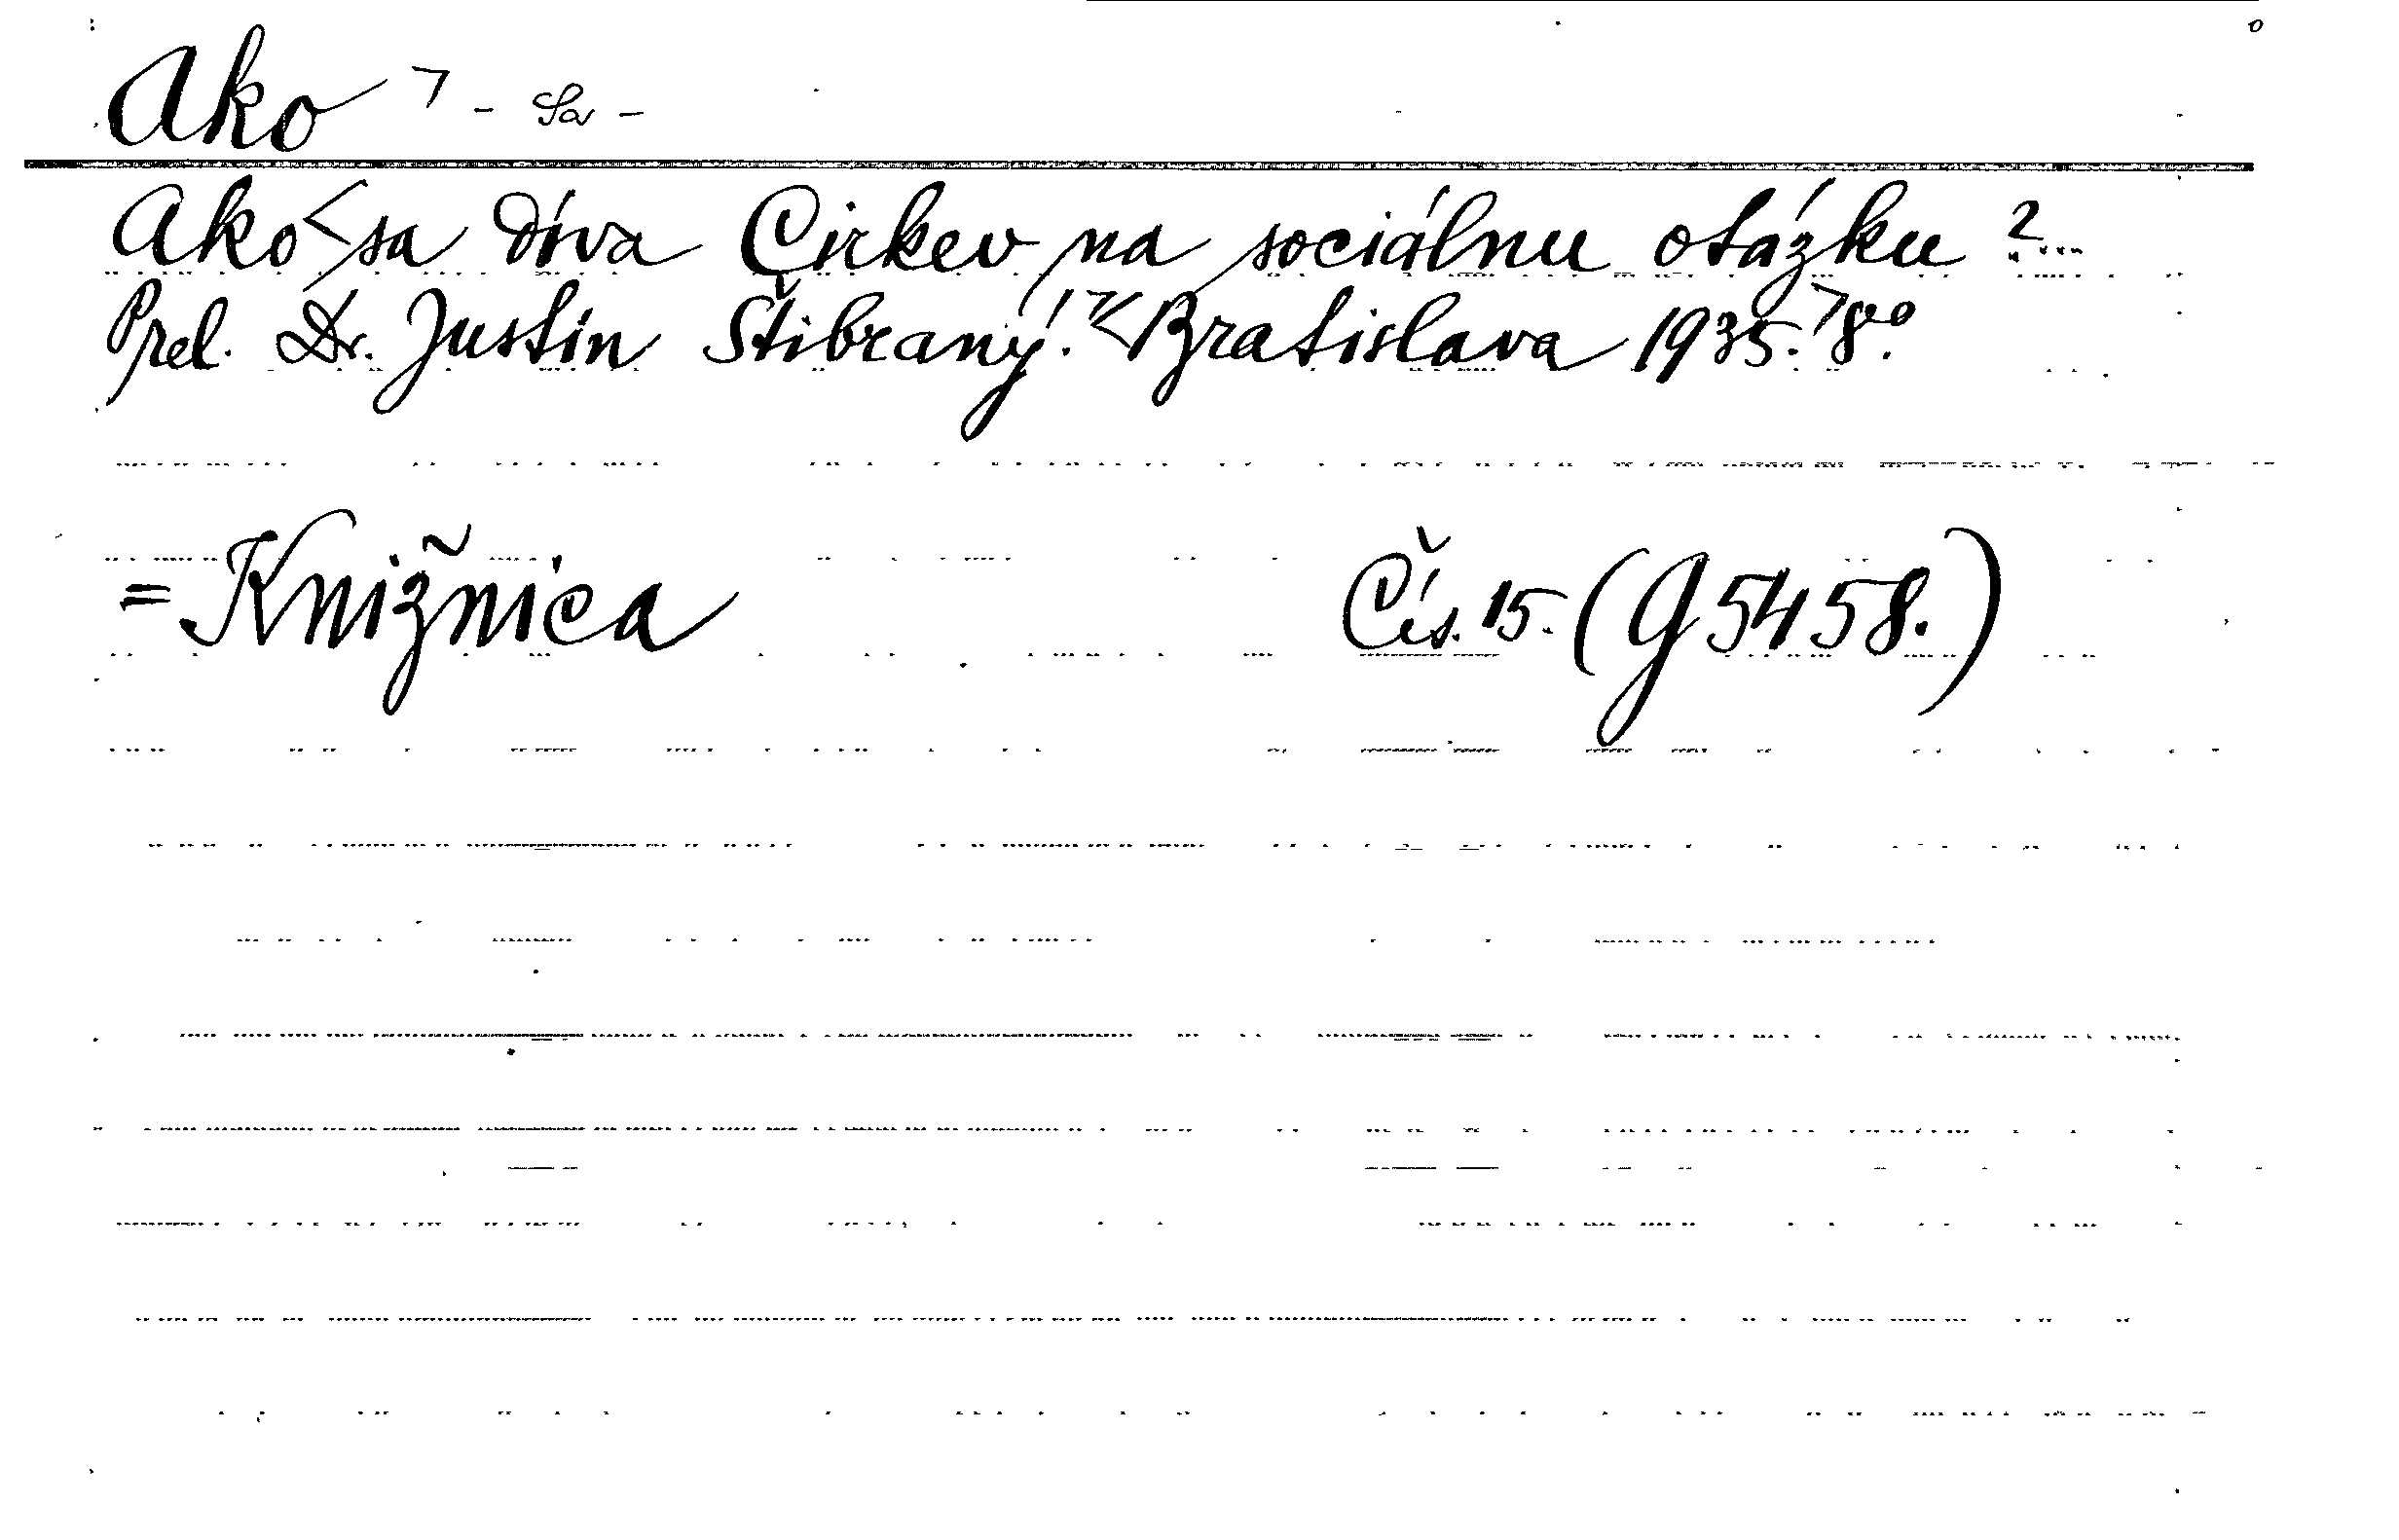 Ako > - Sa -
Ako < sa díva Cirkev na sociálnu otázku ?...
Prel. Dr. Justín Štibraný. >< Bratislava 1935. > 8vo.
= Knižnica Čís. 15. (G 5458.)